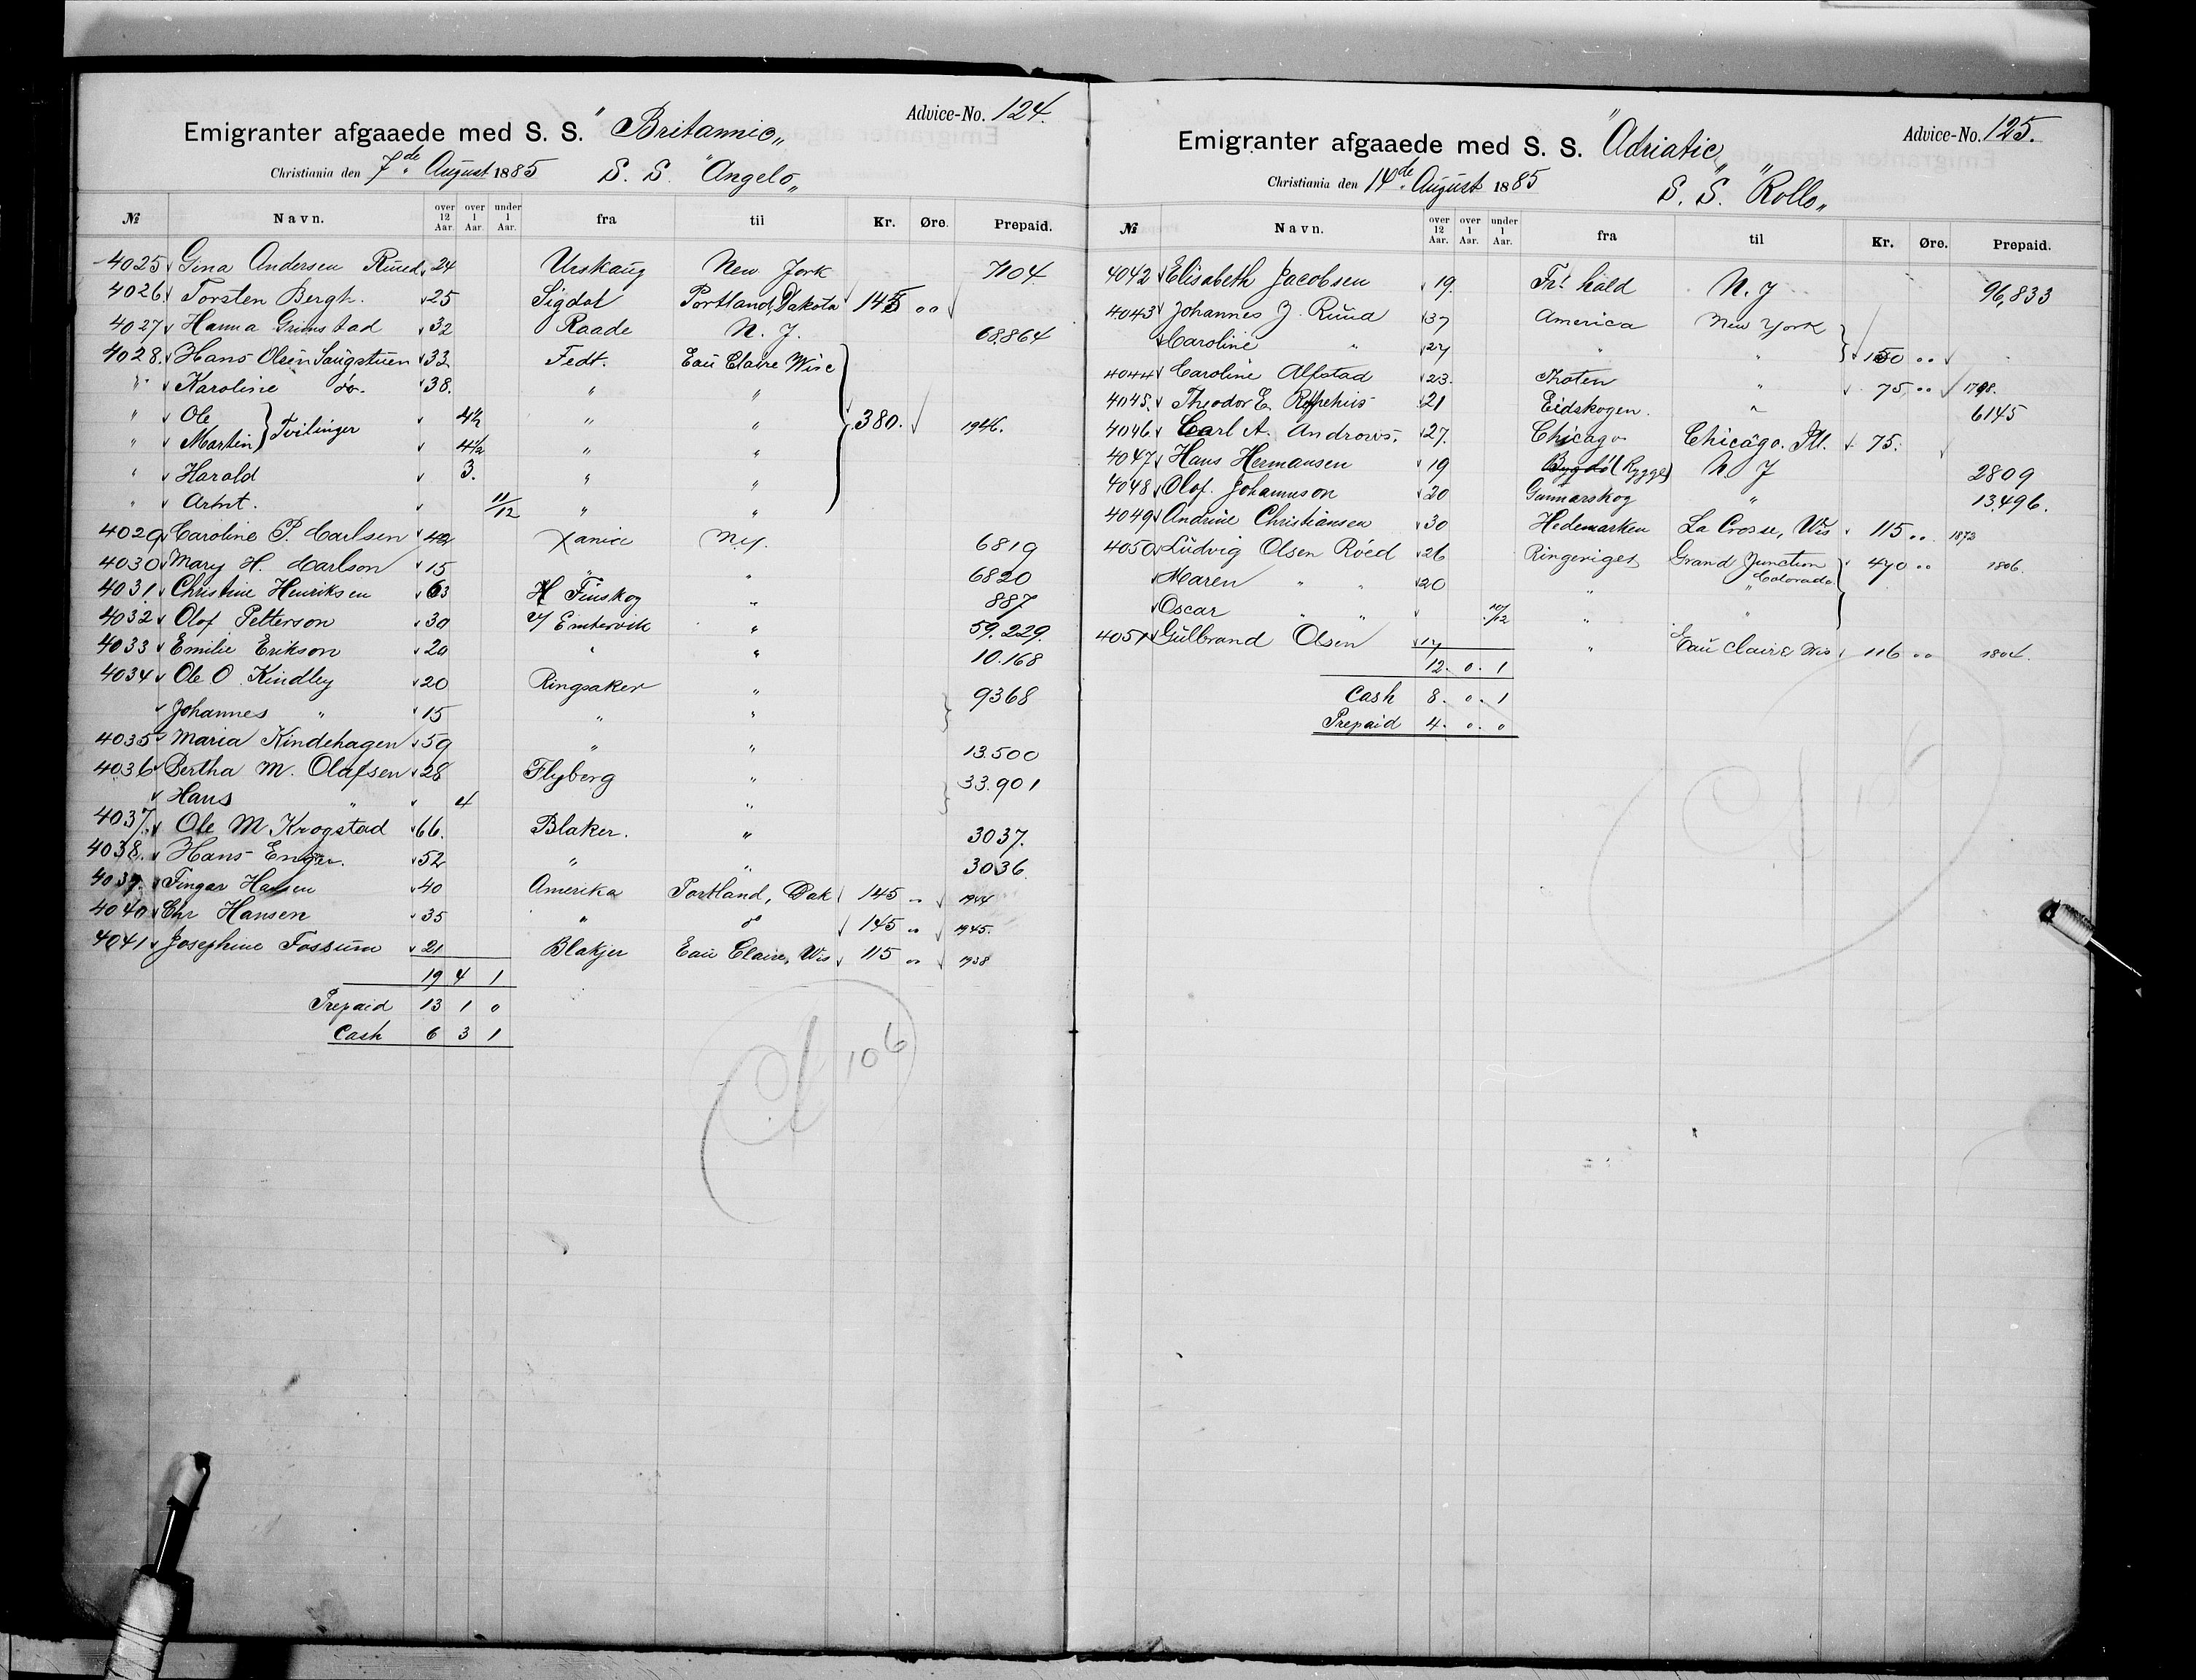 Advice-No. 124.
Emigranter afgaaede med S. S. "Britannic„
Christiania den 7de August 1885 S. S. "Angelo„
№ Navn. over 12 Aar. over 1 Aar. under 1 Aar. fra til Kr. Øre. Prepaid.
4025 Gina Andersen Ruud 24 Urskaug New York 7104
4026 Torsten Bergh. 25 Sigdal Portland, Dakota 145 "
4027 Hanna Grimstad 32 Raade N. Y. 68.864
4028. Hans Olsen Saugstuen 33 Fedt. Eau Claire Wisc
" Karoline do. 38. " "
" Ole } Tvilinger 4½ " " 380. 1946.
" Martin 4½ " "
" Harald 3. " "
" Arnt. 11/12 " "
4029 Caroline P. Carlsen 42 Xania N.Y. 6819
4030 Mary H. Carlson 15 " " 6820
4031 Christine Henriksen 63 Finskog " 887
4032 Olof Petterson 30 Ø/ Emtervik " 59.229.
4033 Emilie Erikson 20 " " 10.168
4034 Ole O. Kindley 20 Ringsaker " 9368
Johannes " 15 " "
4035 Maria Kindehagen 59 " " 13.500
4036 Bertha M. Olafsen 28 Flyberg " 33.901
Hans " 4 "
4037. Ole M Krogstad 66. Blaker. " 3037.
4038. Hans Enger. 52 " " 3036.
4039. Fingar Hansen 40 Amerika Portland, Dak 145 " 1944
4040 Chr Hansen 35 " do 145 " 1945.
4041 Josephine Fossum 21 Blakjer Eau Claire, Wis 115 " 1938
19 4 1
Prepaid 13 1 0
Cash 6 3 1
106
Advice-No. 125.
Emigranter afgaaede med S. S. "Adriatic„
Christiania den 14de August 1885 S. S. "Rollo„
№ Navn. over 12 Aar. over 1 Aar. under 1 Aar. fra til Kr. Øre. Prepaid.
4042 Elisabeth Jacobsen 19. Fr. hald N. Y 96,833
4043 Johannes J. Ruud 37 America New York
Caroline " 27 " " 150 "
4044 Caroline Alfstad 23. Thoten " 75 " 1798.
4045. Theodor E. 21 Eidskogen. " 6145
4046. Carl A. Andrews. 27. Chicago Chicago. Ill. 75.
4047 Hans Hermansen 19 (Rygge) N. Y 2809
4048 Olof. Johannson 20 Gunnarskog " 13.496.
4049 Andrine Christiansen 30 Hedemarken La Crosse, Wis 115 " 1873
4050 Ludvig Olsen Röed 26 Ringeriget Grand Junction 470 " 1806.
Maren " " 20 " " Colorado
Oscar " " 10/12 " "
4051 Gulbrand Olsen 17 " Eau Claire Wis 116 " 1804.
12. 0. 1
Cash 8. 0. 1
Prepaid 4. 0. 0